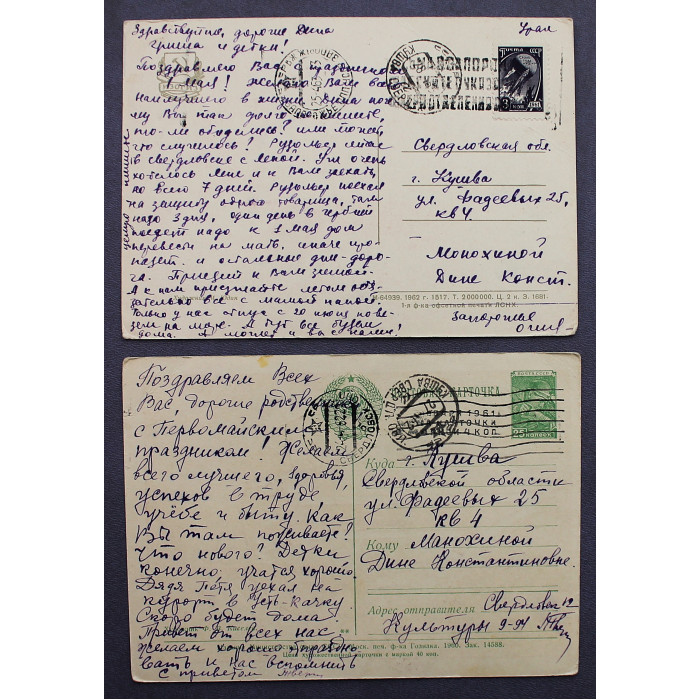 Здравствуйте, дорогие Дина
Гриша и детки!
Поздравляю Вас с праздником
1 мая! Желаю Вам всего
наилучшего в жизни. Дина поче
му Вы так долго не пишете,
то-ли обиделись? или может
что случилось? Рудольф летал
в Свердловск с Леной. Уж очень
хотелось Лене и к Вам заехать,
но всего 7 дней. Рудольф поехал
на защиту одного товарища, там
надо 3 дня, один день в
поедет надо к 1 мая дом
перевести на мать, иначе про-
падет. и остальные дни-доро-
га. Приезд к Вам зимой.
А к нам приезжайте летом обя-
зательно все с мамой папой.
Только у нас отпуск с 20 июня пове-
зем на море. А тут все будем
дома. А может и вы с нами!
целую
Урал
ПОЧТА СССР
Свердловская обл.
г. Кушва
ул. Фадеевых 25,
кв 4
Монохиной
Дине Конст.
М-64939. 1962 г. И517. Т. 2000000. Ц. 2 к. З. 1681.
1-я ф-ка офсетной печати ЛСНХ.
Запорожье
Поздравляем Всех
Вас, дорогие родственники
с Первомайским
праздником! Желаем
всего лучшего, здоровья,
успехов в труде,
учёбе и быту. Как
Вы там поживаете?
Что нового? Детки
конечно, учатся хорошо.
Дядя Петя уехал на
курорт в Усть-Качку
Скоро будет дома.
Привет от всех нас.
Желаем хорошо праздно
вать и нас вспомнить
с приветом
ПОЧТОВАЯ КАРТОЧКА
Куда г. Кушва
Свердловской области
ул. Фадеевых 25
кв 4
Кому Манохиной
Дине Константиновне.
Адрес отправителя Свердловск 19
Культуры 9-
ф-ка Гознака. 1960. Зак. 14588.
Цена художественной карточки с маркой 40 коп.